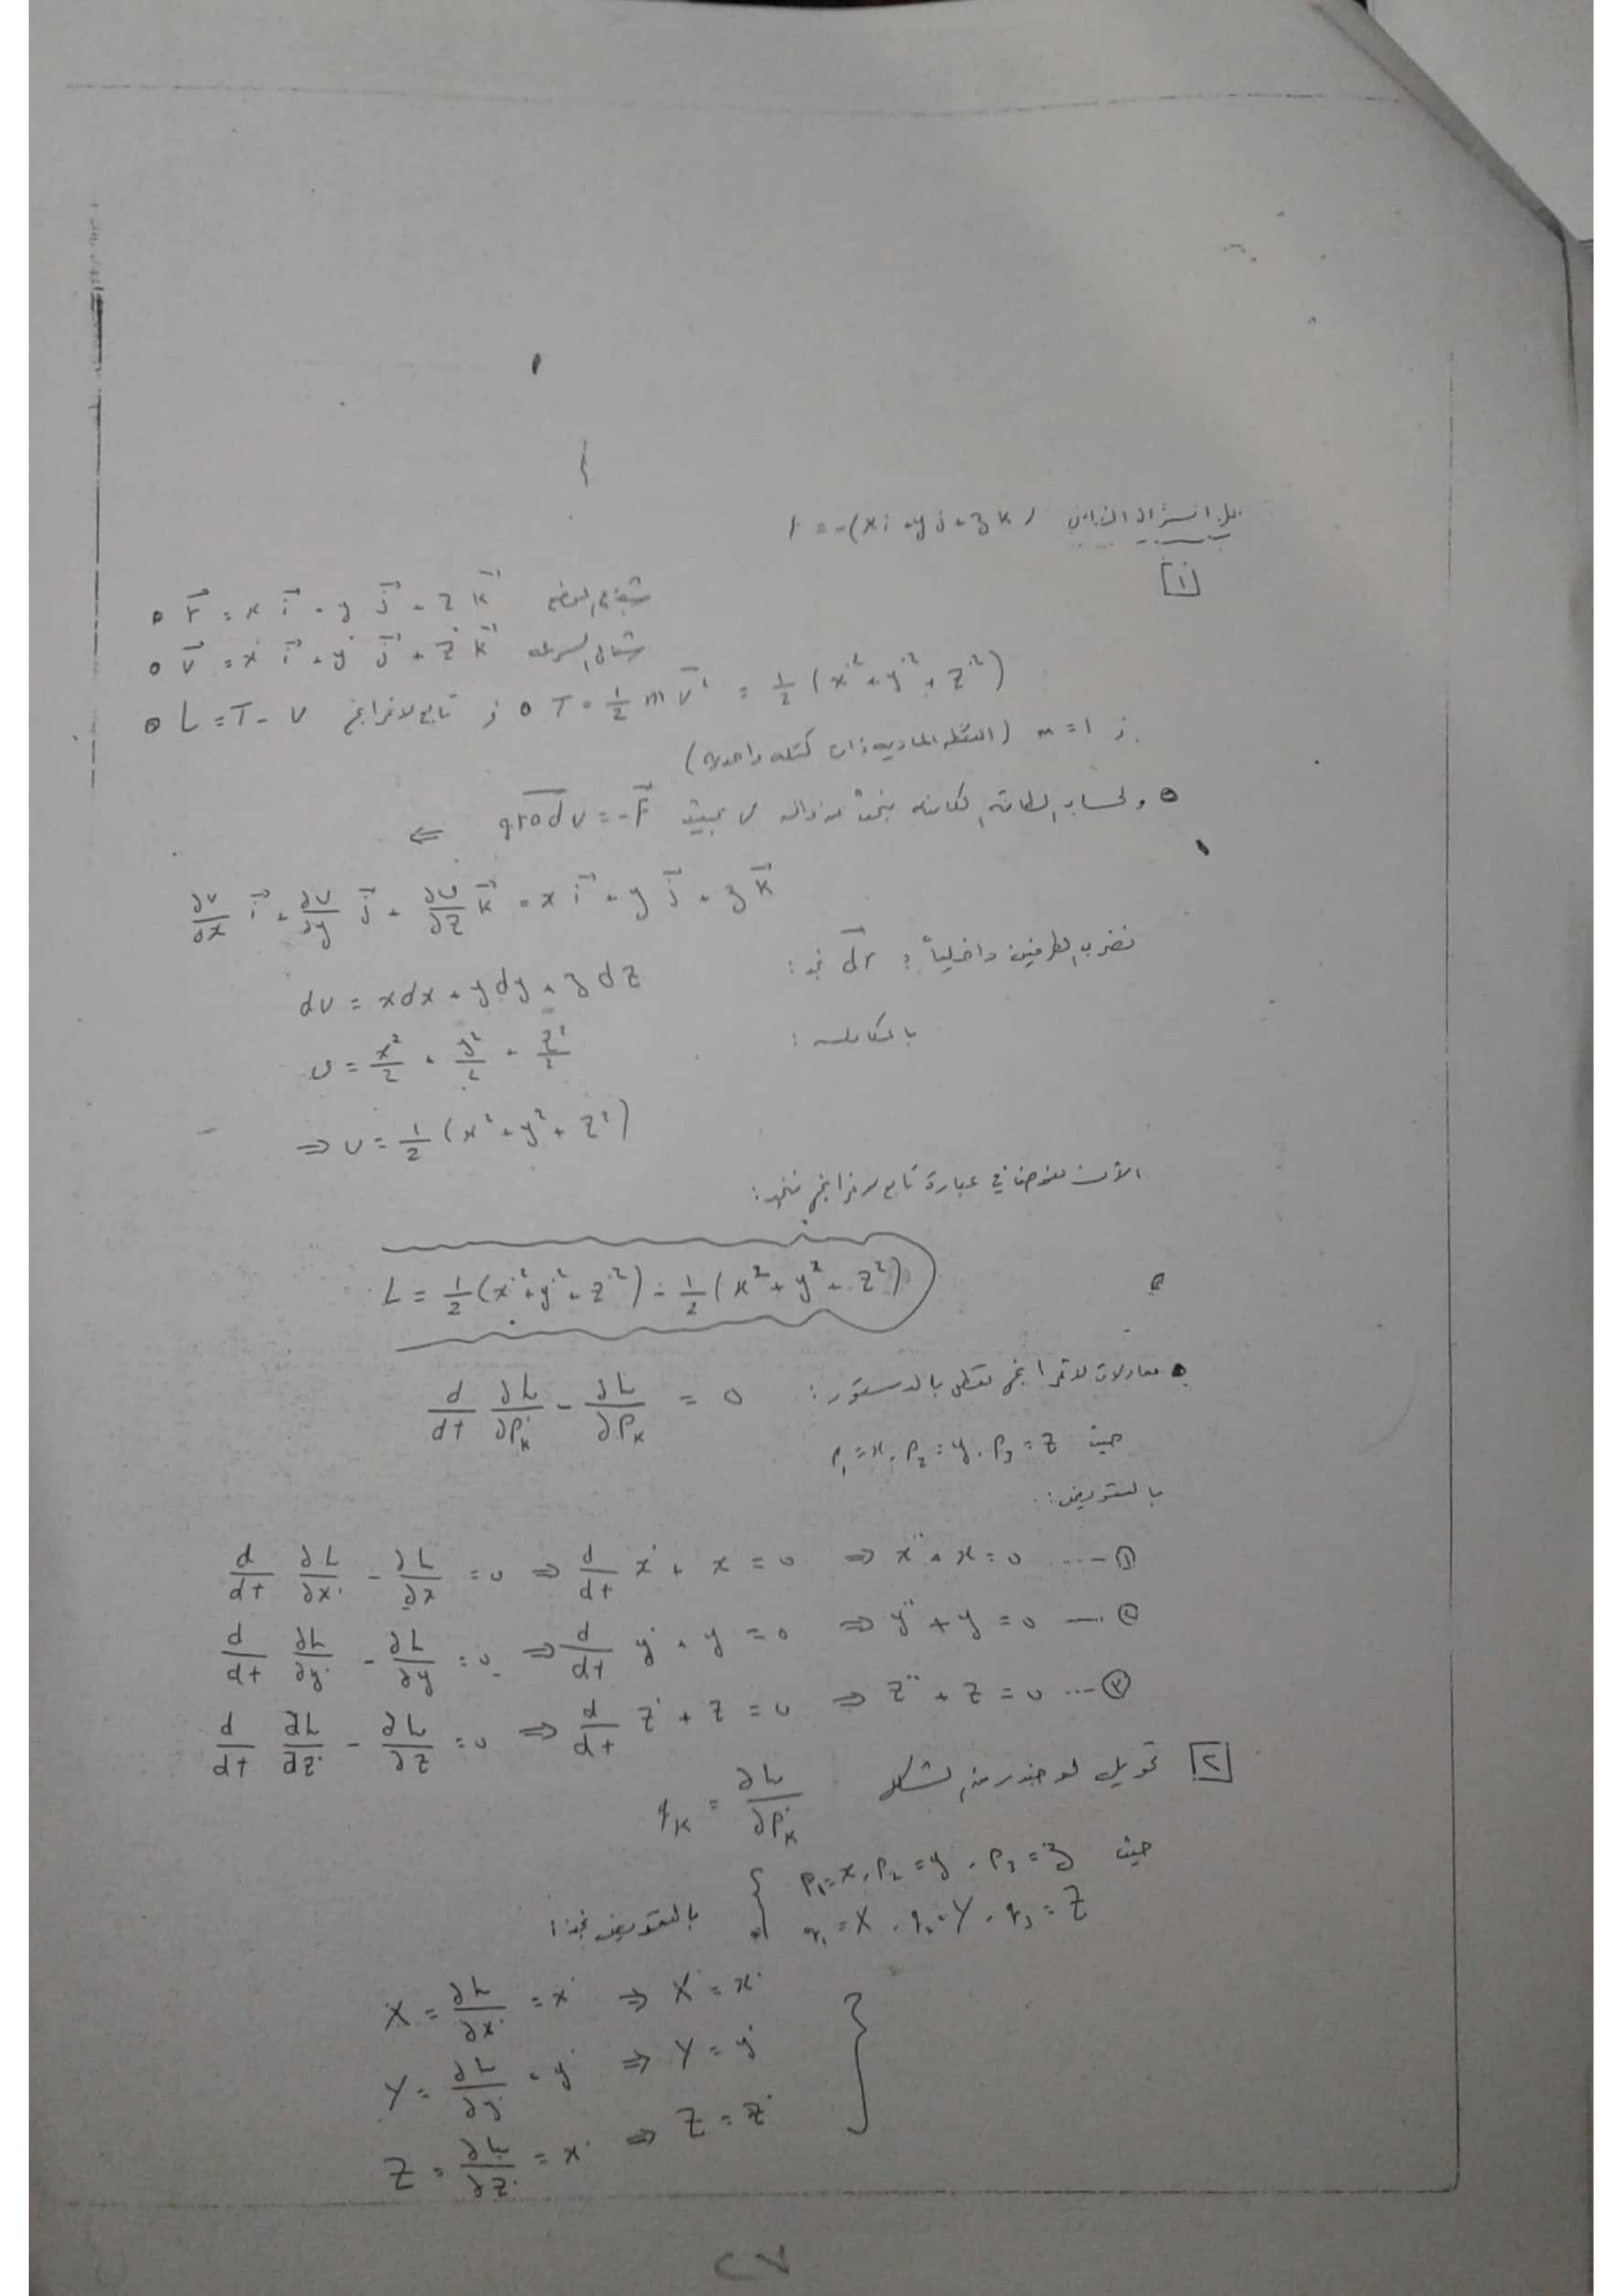 حل السؤال الثامن F = -(xi + yj + zk)
[١]
• r⃗ = x i⃗ + y j⃗ + z k⃗ شعاع الموضع
• v⃗ = x˙ i⃗ + y˙ j⃗ + z˙ k⃗ شعاع السرعة
• L = T - V تابع لاغرانج ; • T = 1/2 m v⃗² = 1/2 (x˙² + y˙² + z˙²)
; m = 1 (النقطة المادية ذات كتلة واحدية)
• ولحساب الطاقة الكامنة نبحث عن دالة V بحيث grad V = -F⃗ ⇐
∂V/∂x i⃗ + ∂V/∂y j⃗ + ∂V/∂z k⃗ = x i⃗ + y j⃗ + z k⃗
نضرب الطرفين داخلياً بـ dr نجد:
dV = xdx + ydy + zdz
بالمكاملة: V = x²/2 + y²/2 + z²/2
⇒ V = 1/2 (x² + y² + z²)
الآن نعوض في عبارة تابع لاغرانج فنجد:
L = 1/2 (x˙² + y˙² + z˙²) - 1/2 (x² + y² + z²)
• معادلات لاغرانج تعطى بالدستور: d/dt ∂L/∂p˙k - ∂L/∂pk = 0
حيث p1 = x, p2 = y, p3 = z
بالتعويض:
d/dt ∂L/∂x˙ - ∂L/∂x = 0 ⇒ d/dt x˙ + x = 0 ⇒ x¨ + x = 0 ... ①
d/dt ∂L/∂y˙ - ∂L/∂y = 0 ⇒ d/dt y˙ + y = 0 ⇒ y¨ + y = 0 ... ②
d/dt ∂L/∂z˙ - ∂L/∂z = 0 ⇒ d/dt z˙ + z = 0 ⇒ z¨ + z = 0 ... ③
[٢] تحويل لوجندر من الشكل qk = ∂L/∂p˙k
حيث p1 = x, p2 = y, p3 = z
q1 = X, q2 = Y, q3 = Z } بالتعويض نجد:
X = ∂L/∂x˙ = x˙ ⇒ X = x˙
Y = ∂L/∂y˙ = y˙ ⇒ Y = y˙
Z = ∂L/∂z˙ = x˙ ⇒ Z = z˙
٢٧